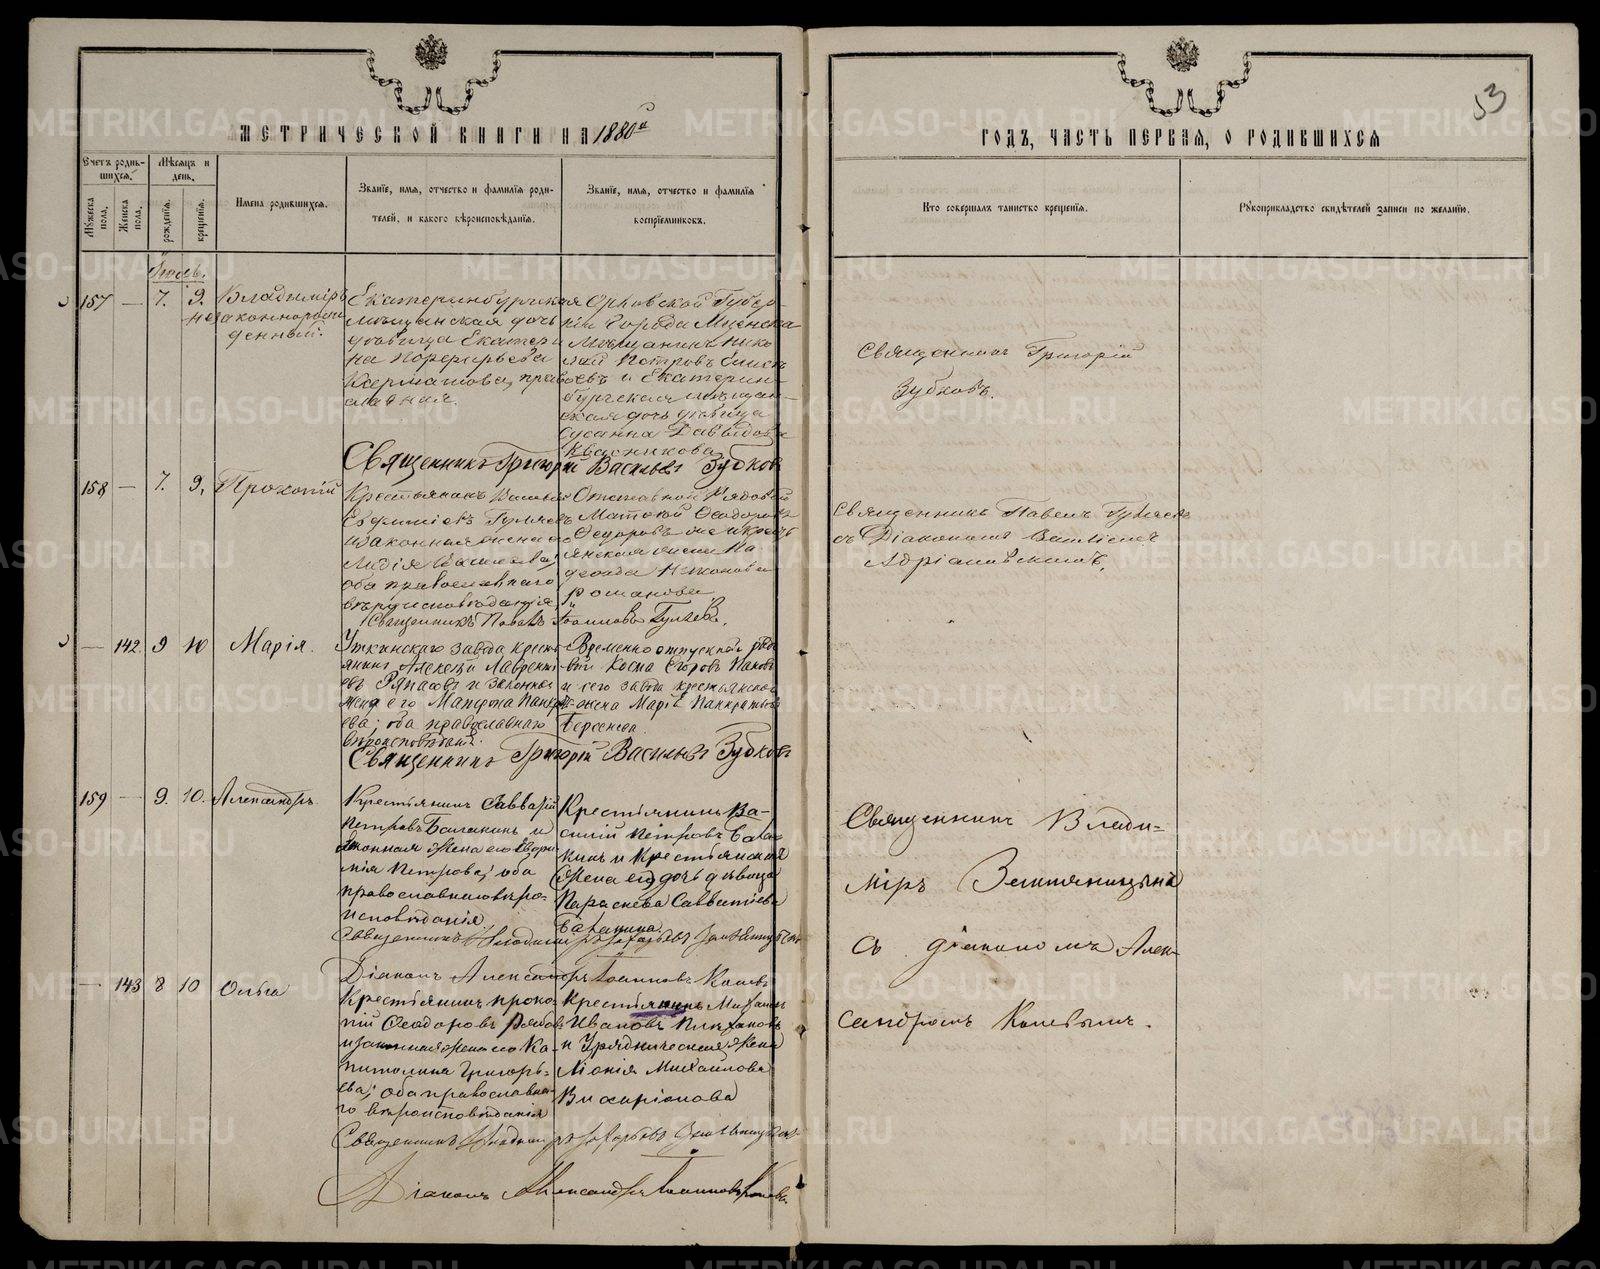 53
МЕТРИЧЕСКОЙ КНИГИ НА 1880й
ГОДЪ, ЧАСТЬ ПЕРВАЯ, О РОДИВШИХСЯ
Счетъ родив-
шихся.
Мѣсяцъ и
день.
Мужеска
пола.
Женска
пола.
рожденія.
крещенія.
Имена родившихся.
Званіе, имя, отчество и фамилія роди-
телей, и какого вѣроисповѣданія.
Званіе, имя, отчество и фамилія
воспріемниковъ.
Кто совершалъ таинство крещенія.
Рукоприкладство свидѣтелей записи по желанію.
Іюль.
157 — 7. 9. Владиміръ
незаконнорож
денный.
Екатеринбургская
мѣщанская дочь
дѣвица Екатери
на Порфирьева
православная.
Орловской Губер-
ніи города Мценска
мѣщанинъ Нико
лай Петровъ
и Екатерин-
бургская мѣщан-
ская дочь дѣвица
Сусанна Давыдова
Квасникова
Священникъ Григорій
Зубковъ.
Священникъ Григорій Васильевъ Зубковъ
158 — 7. 9. Прокопій
Крестьянинъ Василій
Евфиміевъ Гуляевъ
и законная жена его
Лидія
оба православнаго
вѣроисповѣданія
Отставной рядовой
Матвѣй Ѳеодоровъ
Ѳедоровъ же и кресть
янская жена На
дежда
романова
Священникъ Павелъ Гуляевъ
съ Діакономъ Василіемъ
Адріановскимъ.
Священникъ Павелъ Іоанновъ Гуляевъ.
— 142 9 10 Марія.
Уткинскаго завода Кресть
янинъ Алексѣй Лаврентi
евъ и законная
жена его Панкрать
ева; оба православнаго
вѣроисповѣданія.
Временно отпускной рядо
вой Косма Егоровъ Пановъ
и сего завода крестьянская
жена Марія Панкратьева
Берсенева.
Священникъ Григорій Васильевъ Зубковъ
159 — 9. 10. Александръ.
Крестьянинъ Савватій
Петровъ Балакинъ и
законная жена его Евге-
нія Петрова; оба
православнаго вѣро-
исповѣданія
Крестьянинъ Ва-
силій Петровъ Бала-
кинъ и Крестьянская
жена его дочь дѣвица
Параскева Савватіева
Балакина.
Священникъ Влади-
міръ Земляницынъ
съ діакономъ Алек-
сандромъ Коневымъ.
Священникъ Владиміръ Захаровъ Земляницынъ
Діаконъ Александръ Іоанновъ Коневъ
— 143 8 10 Ольга
Крестьянинъ Проко-
пій Ѳеодоровъ
и законная жена его Ка-
питолина Григорь-
ева; оба православна-
го вѣроисповѣданія
Крестьянинъ Михаилъ
Ивановъ Плехановъ
и Урядническая жена
Михаилова
Виссаріонова
Священникъ Владиміръ Захаровъ Земляницынъ
Діаконъ Александръ Іоанновъ Коневъ
METRIKI.GASO-URAL.RU